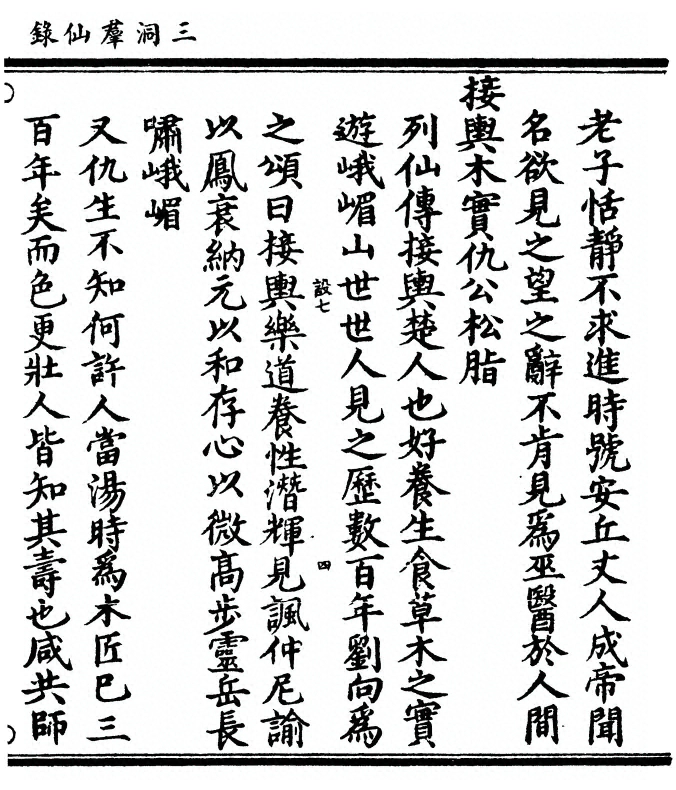 三洞羣仙錄
老子恬靜不求進時號安丘丈人成帝聞
名欲見之望之辭不肯見爲巫醫於人間
接輿木實仇公松脂
列仙傳接輿楚人也好養生食草木之實
遊峨嵋山世世人見之歷數百年劉向爲
設七
四
之頌曰接輿樂道養性潛輝見諷仲尼諭
以鳳衰納元以和存心以微高步靈岳長
嘯峨嵋
又仇生不知何許人當湯時爲木匠巳三
百年矣而色更壯人皆知其壽也咸共師